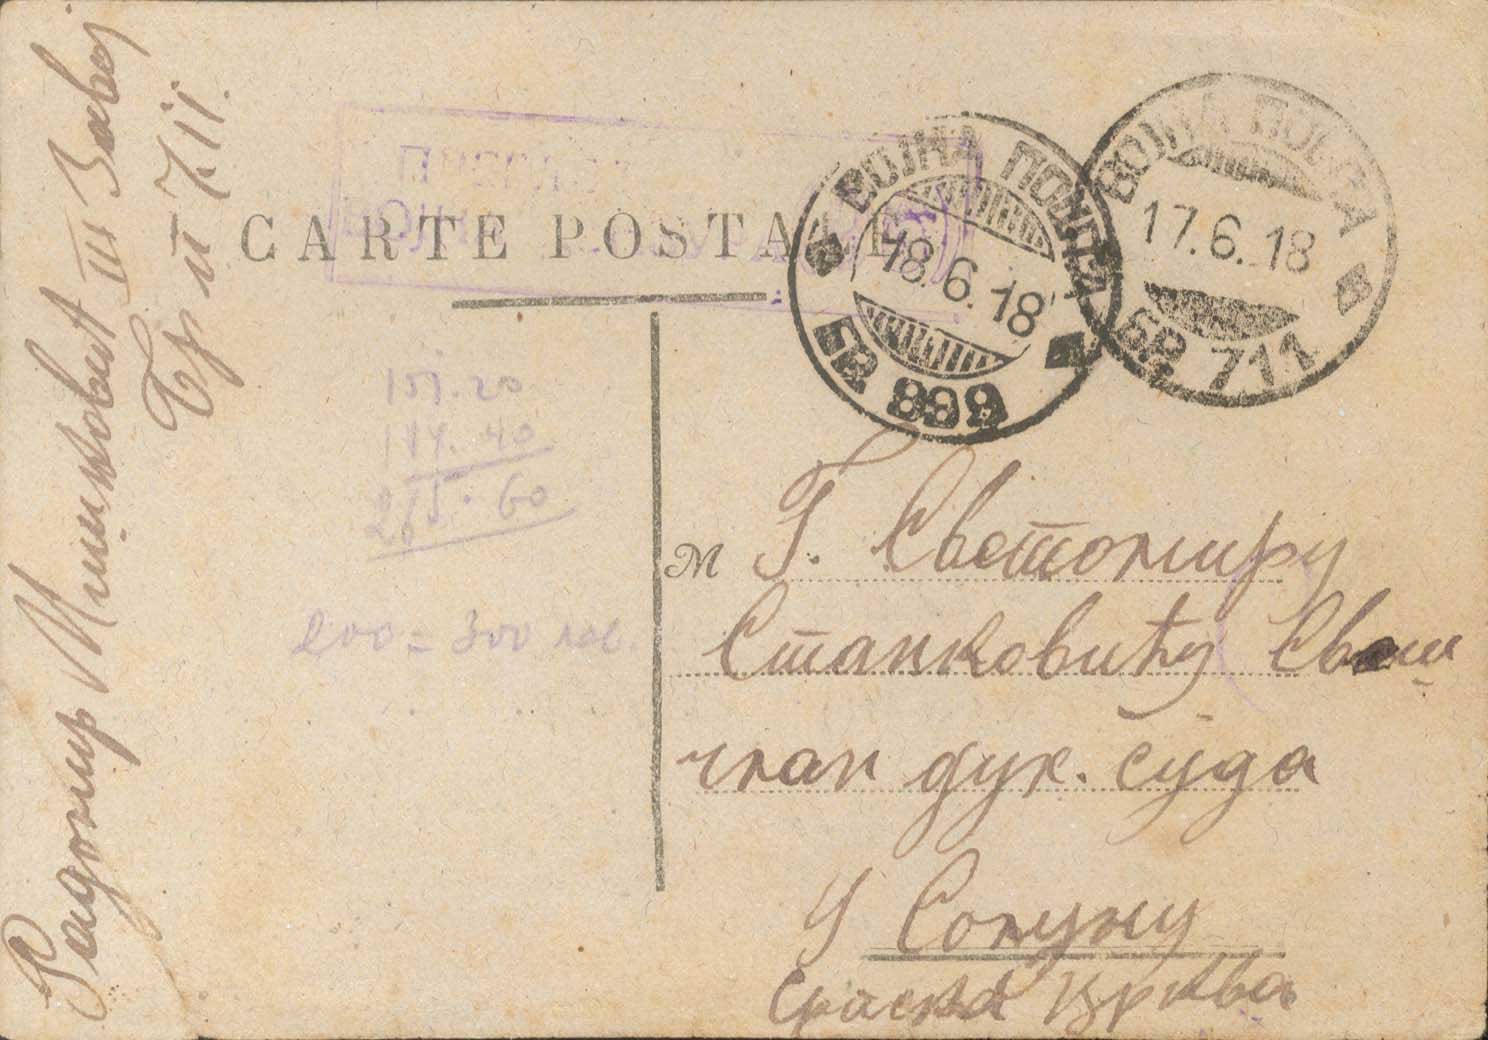 CARTE POSTALE
ВОЈНА ПОШТА
18.6.18
БР. 999
ВОЈНА ПОШТА
17.6.18
БР. 711
Радомир Мишковић III Завој
Бр п 711.
151.20
114.40
265.60
200 = 300 лев.
M Г. Светомиру
Станковићу Свеш
члан дух. суда
у Солуну
Српска црква